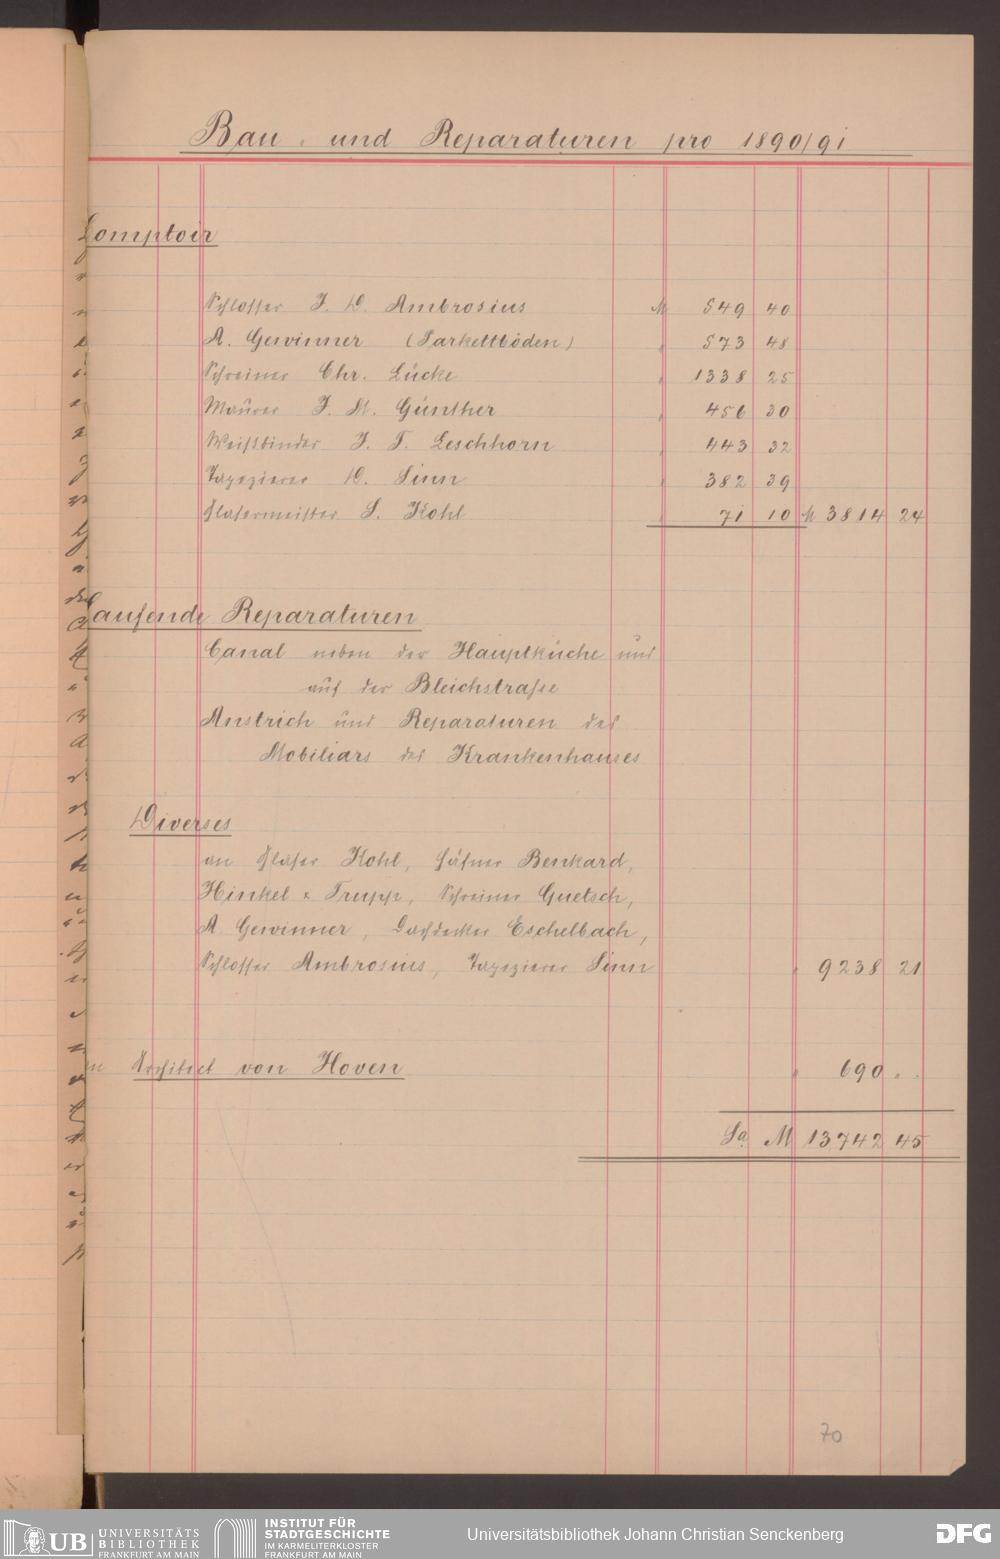 Bau- und Reparaturen pro 1890/91
Comptoir
Schlosser J. D. Ambrosius M 549 40
A. Gewinner (Parkettböden) " 573 48
Schreiner Chr. Lücke " 1338 25
Maurer J. M. Günther " 456 30
Weißbinder J. T. Leschhorn " 443 32
Tapezierer D. Sinn " 382 39
Glasermeister S. Kohl " 71 10 M 3814 24
Laufende Reparaturen
Canal neben der Hauptküche und
auf der Bleichstrasse
Anstrich und Reparaturen des
Mobiliars des Krankenhauses
Diverses
an Glaser Kohl, Häfner Benkard,
Hinkel & Trupp, Schreiner Guetsch,
A. Gewinner, Dachdecker Eschelbach,
Schlosser Ambrosius, Tapezierer Sinn " 9238 21
an Architect von Hoven " 690 " "
Sa. M 13,742 45
70
UB UNIVERSITÄTS
BIBLIOTHEK
FRANKFURT AM MAIN
INSTITUT FÜR
STADTGESCHICHTE
IM KARMELITERKLOSTER
FRANKFURT AM MAIN
Universitätsbibliothek Johann Christian Senckenberg
DFG